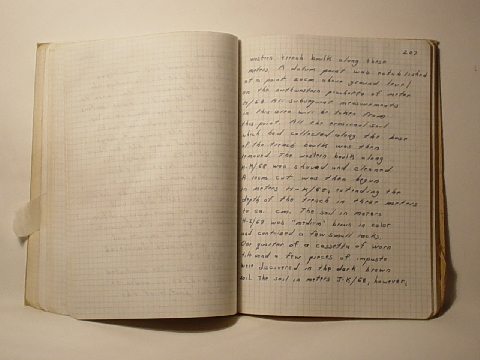 207
western trench baulk along these
meters. A datum point was established
at a point 20cm above ground level
on the southwestern picchetto of meter
/68. All subsequent measurements
in this area will be taken from
this point. All the erosional soil
which had collected along the base
of the trench baulk was then
removed. The western baulk along
H-K/68 was shaved and cleaned.
A 10cm cut was then begun
in meters H-K/68, extending the
depth of the trench in these meters
to ca. cms. The soil in meters
H-I/68 was "medium" brown in color
and contained a few small rocks.
One quarter of a cassetta of worn
tile and a few pieces of impasto
were discovered in the dark brown
soil. The soil in meters J-K/68, however,